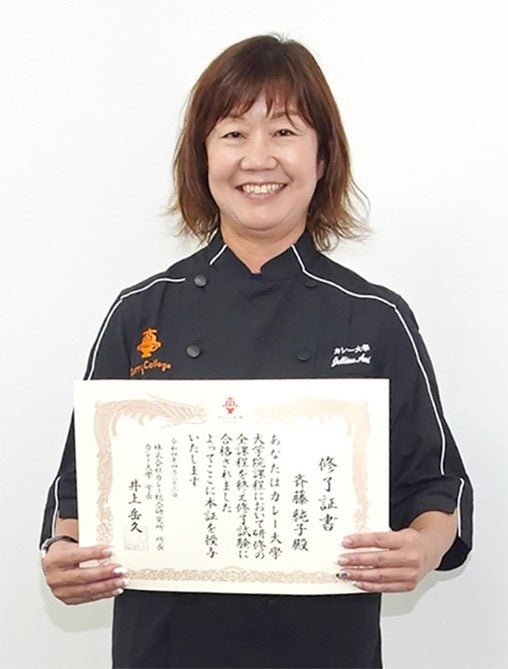 Curry College
カレー大學
修了証書
斉藤純子殿
あなたはカレー大學
大学院課程において研修の
全課程を終え修了試験に
合格されました
よってここに本証を授与
いたします
株式会社カレー総合研究所 所長
カレー大學 学長
井上岳久